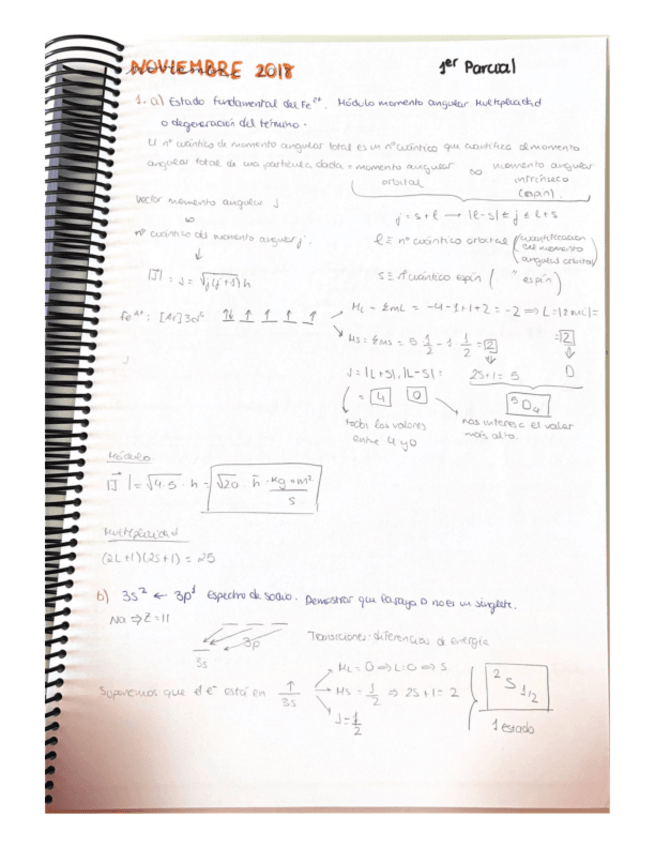 NOVIEMBRE 2018
1er Parcial
1. a) Estado fundamental del Fe2+. Módulo momento angular. Multiplicidad
o degeneración del término.
El nº cuántico de momento angular total es un nº cuántico que cuantifica el momento
angular total de una partícula dada = momento angular orbital ∞ momento angular intrínseco (espín).
vector momento angular J
∞
nº cuántico del momento angular j.
↓
|J| = J = √j(j+1) ħ
j = s + l → |l-s| ≤ j ≤ l+s
l ≡ nº cuántico orbital (cuantificación del momento angular orbital)
s ≡ nº cuántico espín ( " espín)
Fe2+: [Ar]3d6 ↑↓ ↑ ↑ ↑ ↑
ML = ΣmL = -4-1+1+2 = -2 ⇒ L = |ΣmL| = 2
MS = Σms = 5·1/2 - 1·1/2 = 2
2S+1 = 5
D
J = |L+S|, |L-S| =
= 4 0
5D4
todos los valores
entre 4 y 0
nos interesa el valor
más alto.
Módulo
|J| = √4·5 · ħ = √20 · ħ · kg·m²/s
Multiplicidad
(2L+1)(2S+1) = 25
b) 3s2 ← 3p1 Espectro de sodio. Demostrar que la raya D no es un singlete.
Na ⇒ Z = 11
3p
3s
Transiciones: diferencias de energía
Suponemos que el e- está en ↑ 3s
ML = 0 ⇒ L = 0 ⇒ S
MS = 1/2 ⇒ 2S+1 = 2
J = 1/2
2S1/2
1 estado